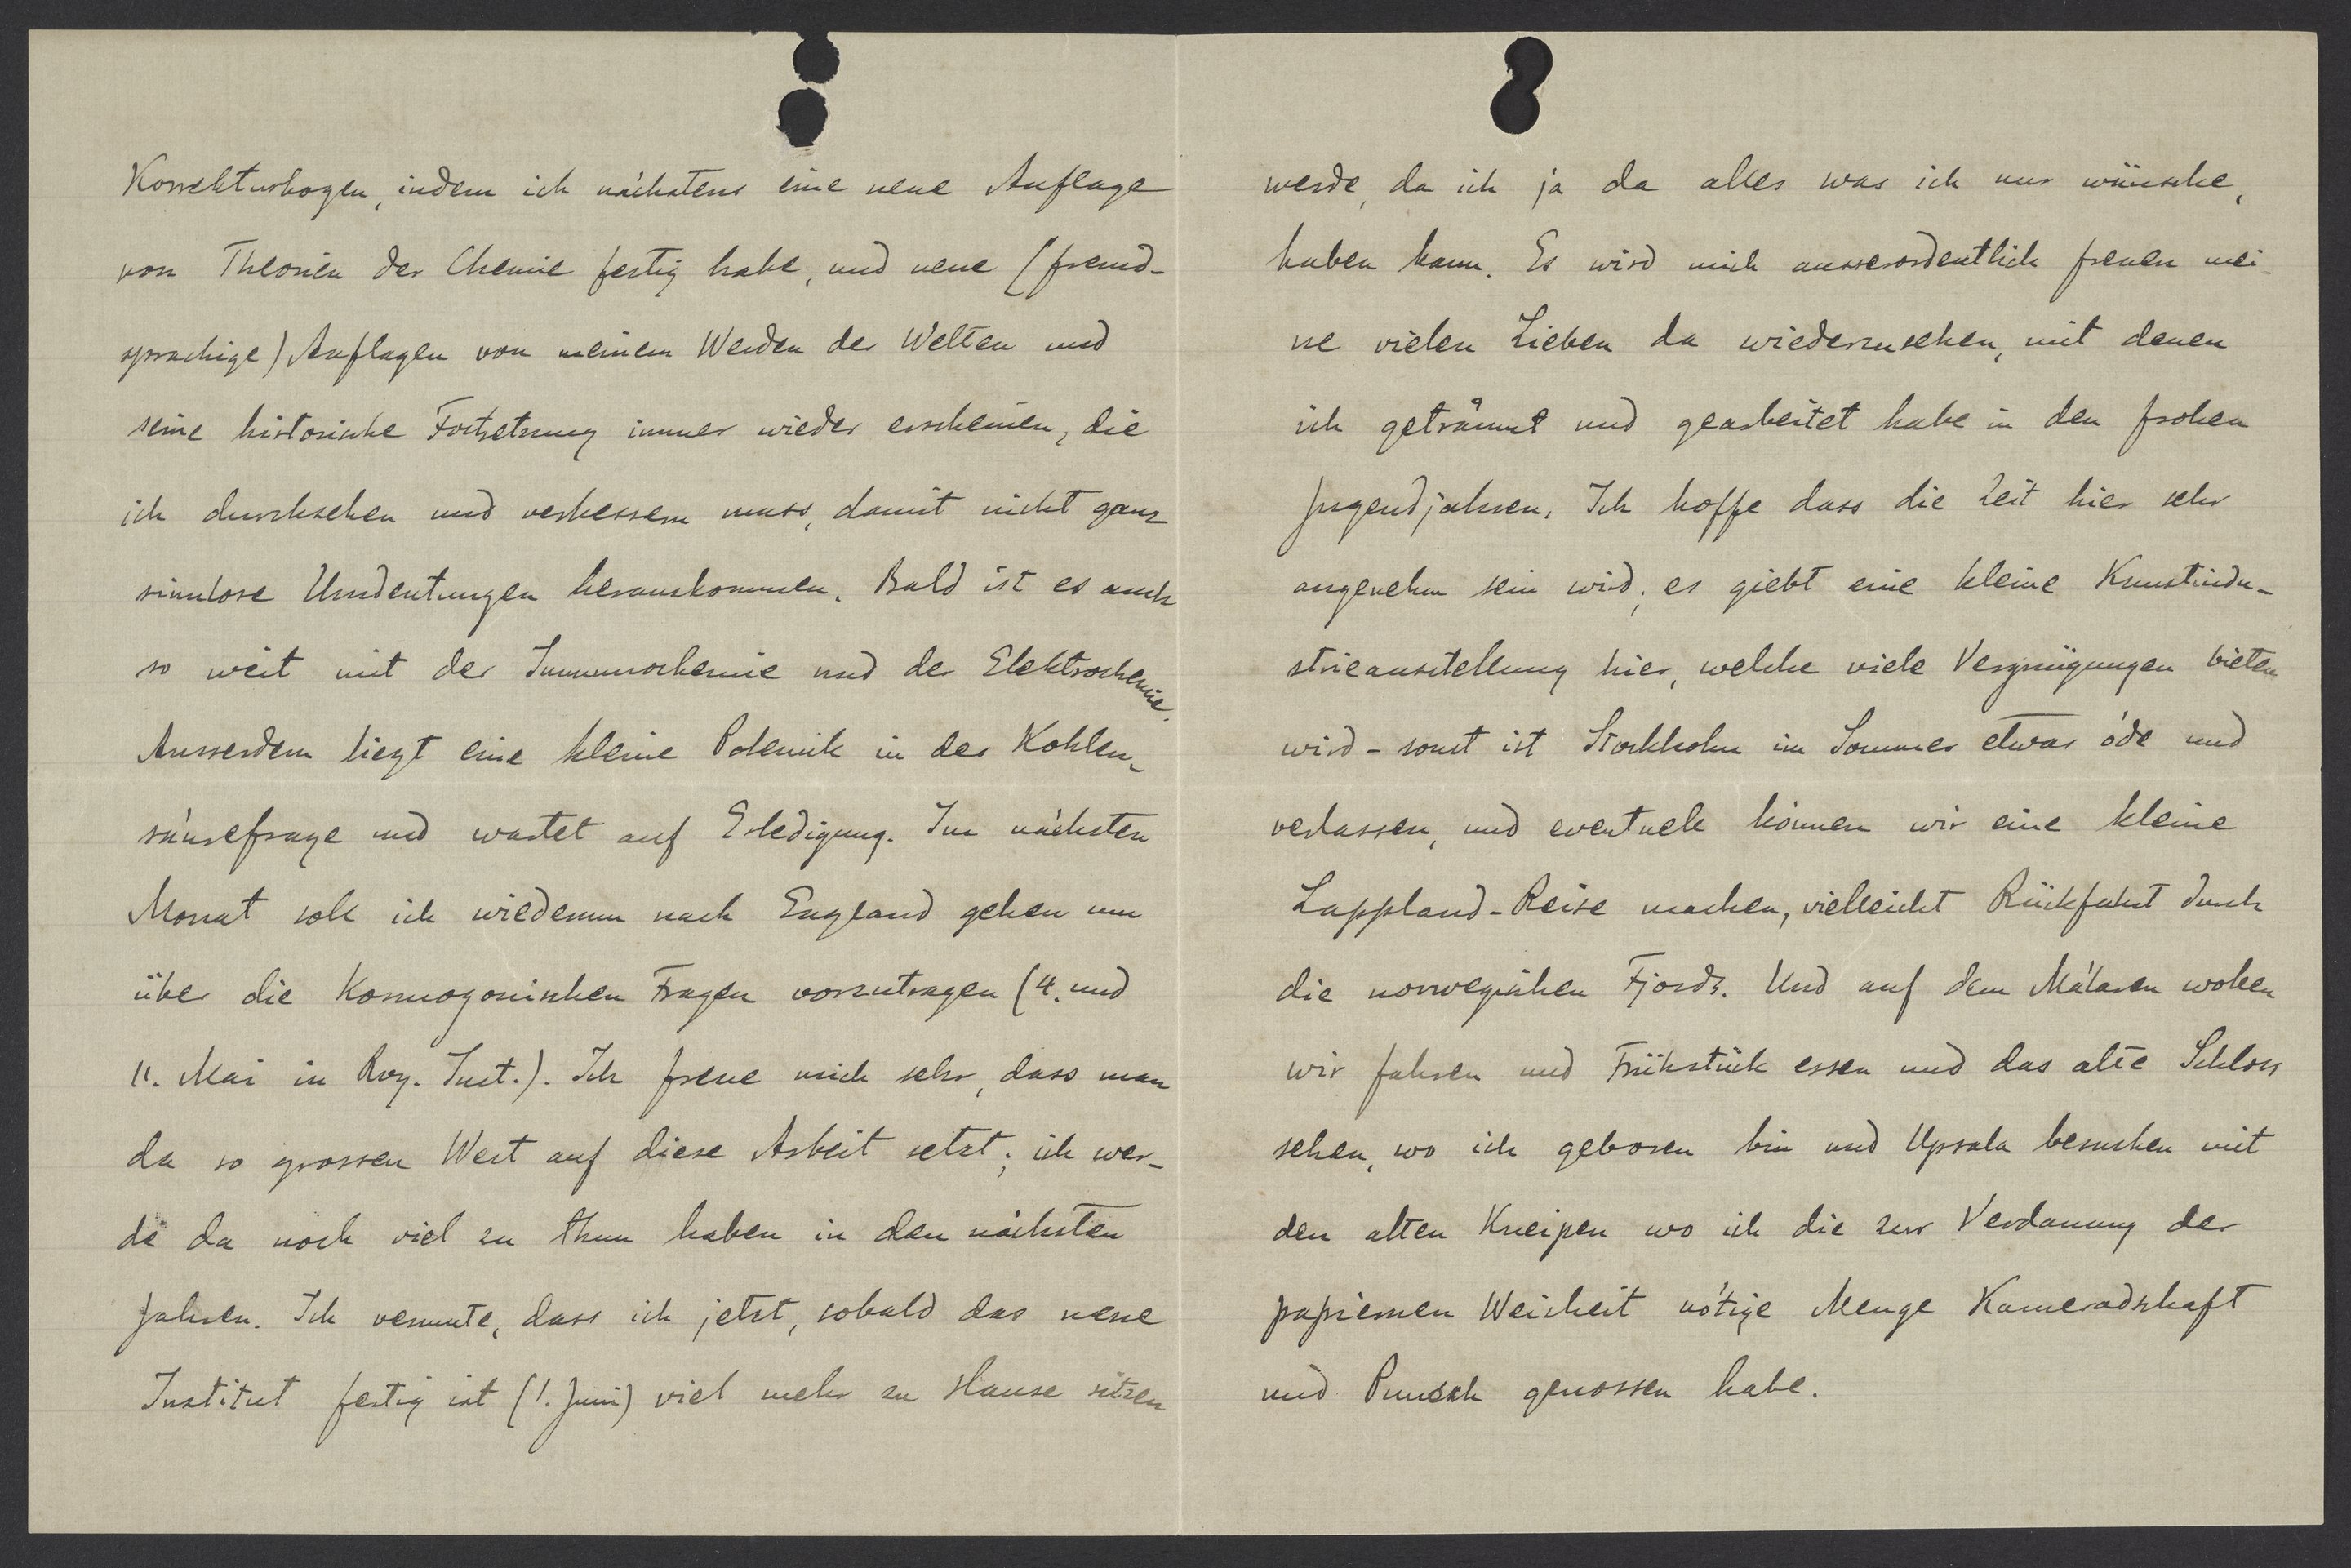 Korrekturbogen, indem ich nächstens eine neue Auflage
von Theorien der Chemie fertig habe, und neue (fremd-
sprachige) Auflagen von meinem Werden der Welten und
seine historische Fortsetzung immer wieder erscheinen, die
ich durchsehen und verbessern muss, damit nicht ganz
sinnlose Umdeutungen herauskommen. Bald ist es auch
so weit mit der Immunochemie und der Elektrochemie.
Ausserdem liegt eine kleine Polemik in der Kohlen-
säurefrage und wartet auf Erledigung. Im nächsten
Monat soll ich wiederum nach England gehen um
über die Kosmogonischen Fragen vorzutragen (4. und
11. Mai in Roy. Inst.). Ich freue mich sehr, dass man
da so grossen Wert auf diese Arbeit setzt; ich wer-
de da noch viel zu thun haben in den nächsten
Jahren. Ich vermute, dass ich jetzt, sobald das neue
Institut fertig ist (1. Juni) viel mehr zu Hause sitzen
werde, da ich ja da alles was ich nur wünsche,
haben kann. Es wird mich ausserordentlich freuen mei-
ne vielen Lieben da wiederzusehen, mit denen
ich geträumt und gearbeitet habe in den frohen
Jugendjahren. Ich hoffe dass die Zeit hier sehr
angenehm sein wird; es giebt eine kleine Kunstindu-
strieausstellung hier, welche viele Vergnügungen bieten
wird - sonst ist Stockholm im Sommer etwas öde und
verlassen, und eventuell können wir eine kleine
Lappland-Reise machen, vielleicht Rückfahrt durch
die norwegischen Fjords. Und auf dem Mälaren wollen
wir fahren und Frühstück essen und das alte Schloss
sehen, wo ich geboren bin und Upsala besuchen mit
den alten Kneipen wo ich die zur Verdauung der
papiernen Weisheit nötige Menge Kameradschaft
und Punsch genossen habe.